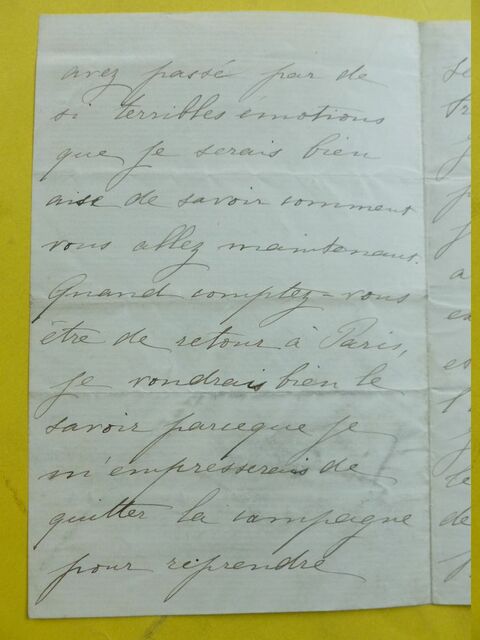 avez passé par de
si terribles émotions
que je serais bien
aise de savoir comment
vous allez maintenant.
Quand comptez-vous
être de retour à Paris,
je voudrais bien le
savoir parceque je
m'empresserais de
quitter la campagne
pour reprendre